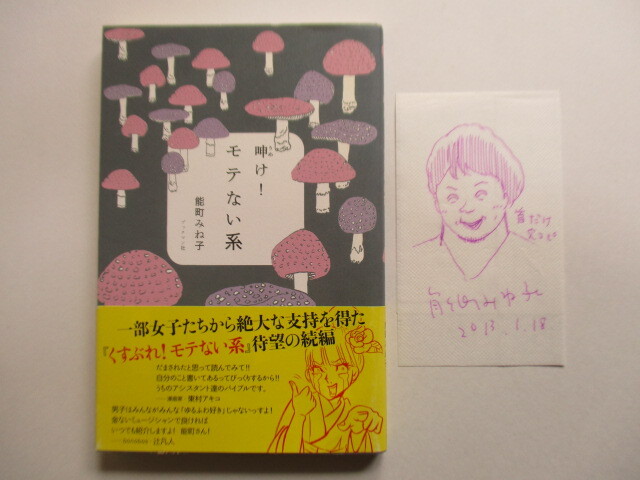 呻け!
うめ
モテない系
能町みね子
ブックマン社
一部女子たちから絶大な支持を得た
『くすぶれ!モテない系』待望の続編
だまされたと思って読んでみて!!
自分のこと書いてあるってびっくりするから!!
うちのアシスタント達のバイブルです。
東村アキコ
男子はみんながみんな「ゆるふわ好き」じゃないっすよ!
金ないミュージシャンで良ければ
いつでも紹介しますよ!能町さん!
辻凡人
首だけ
能町みね子
2013.1.18